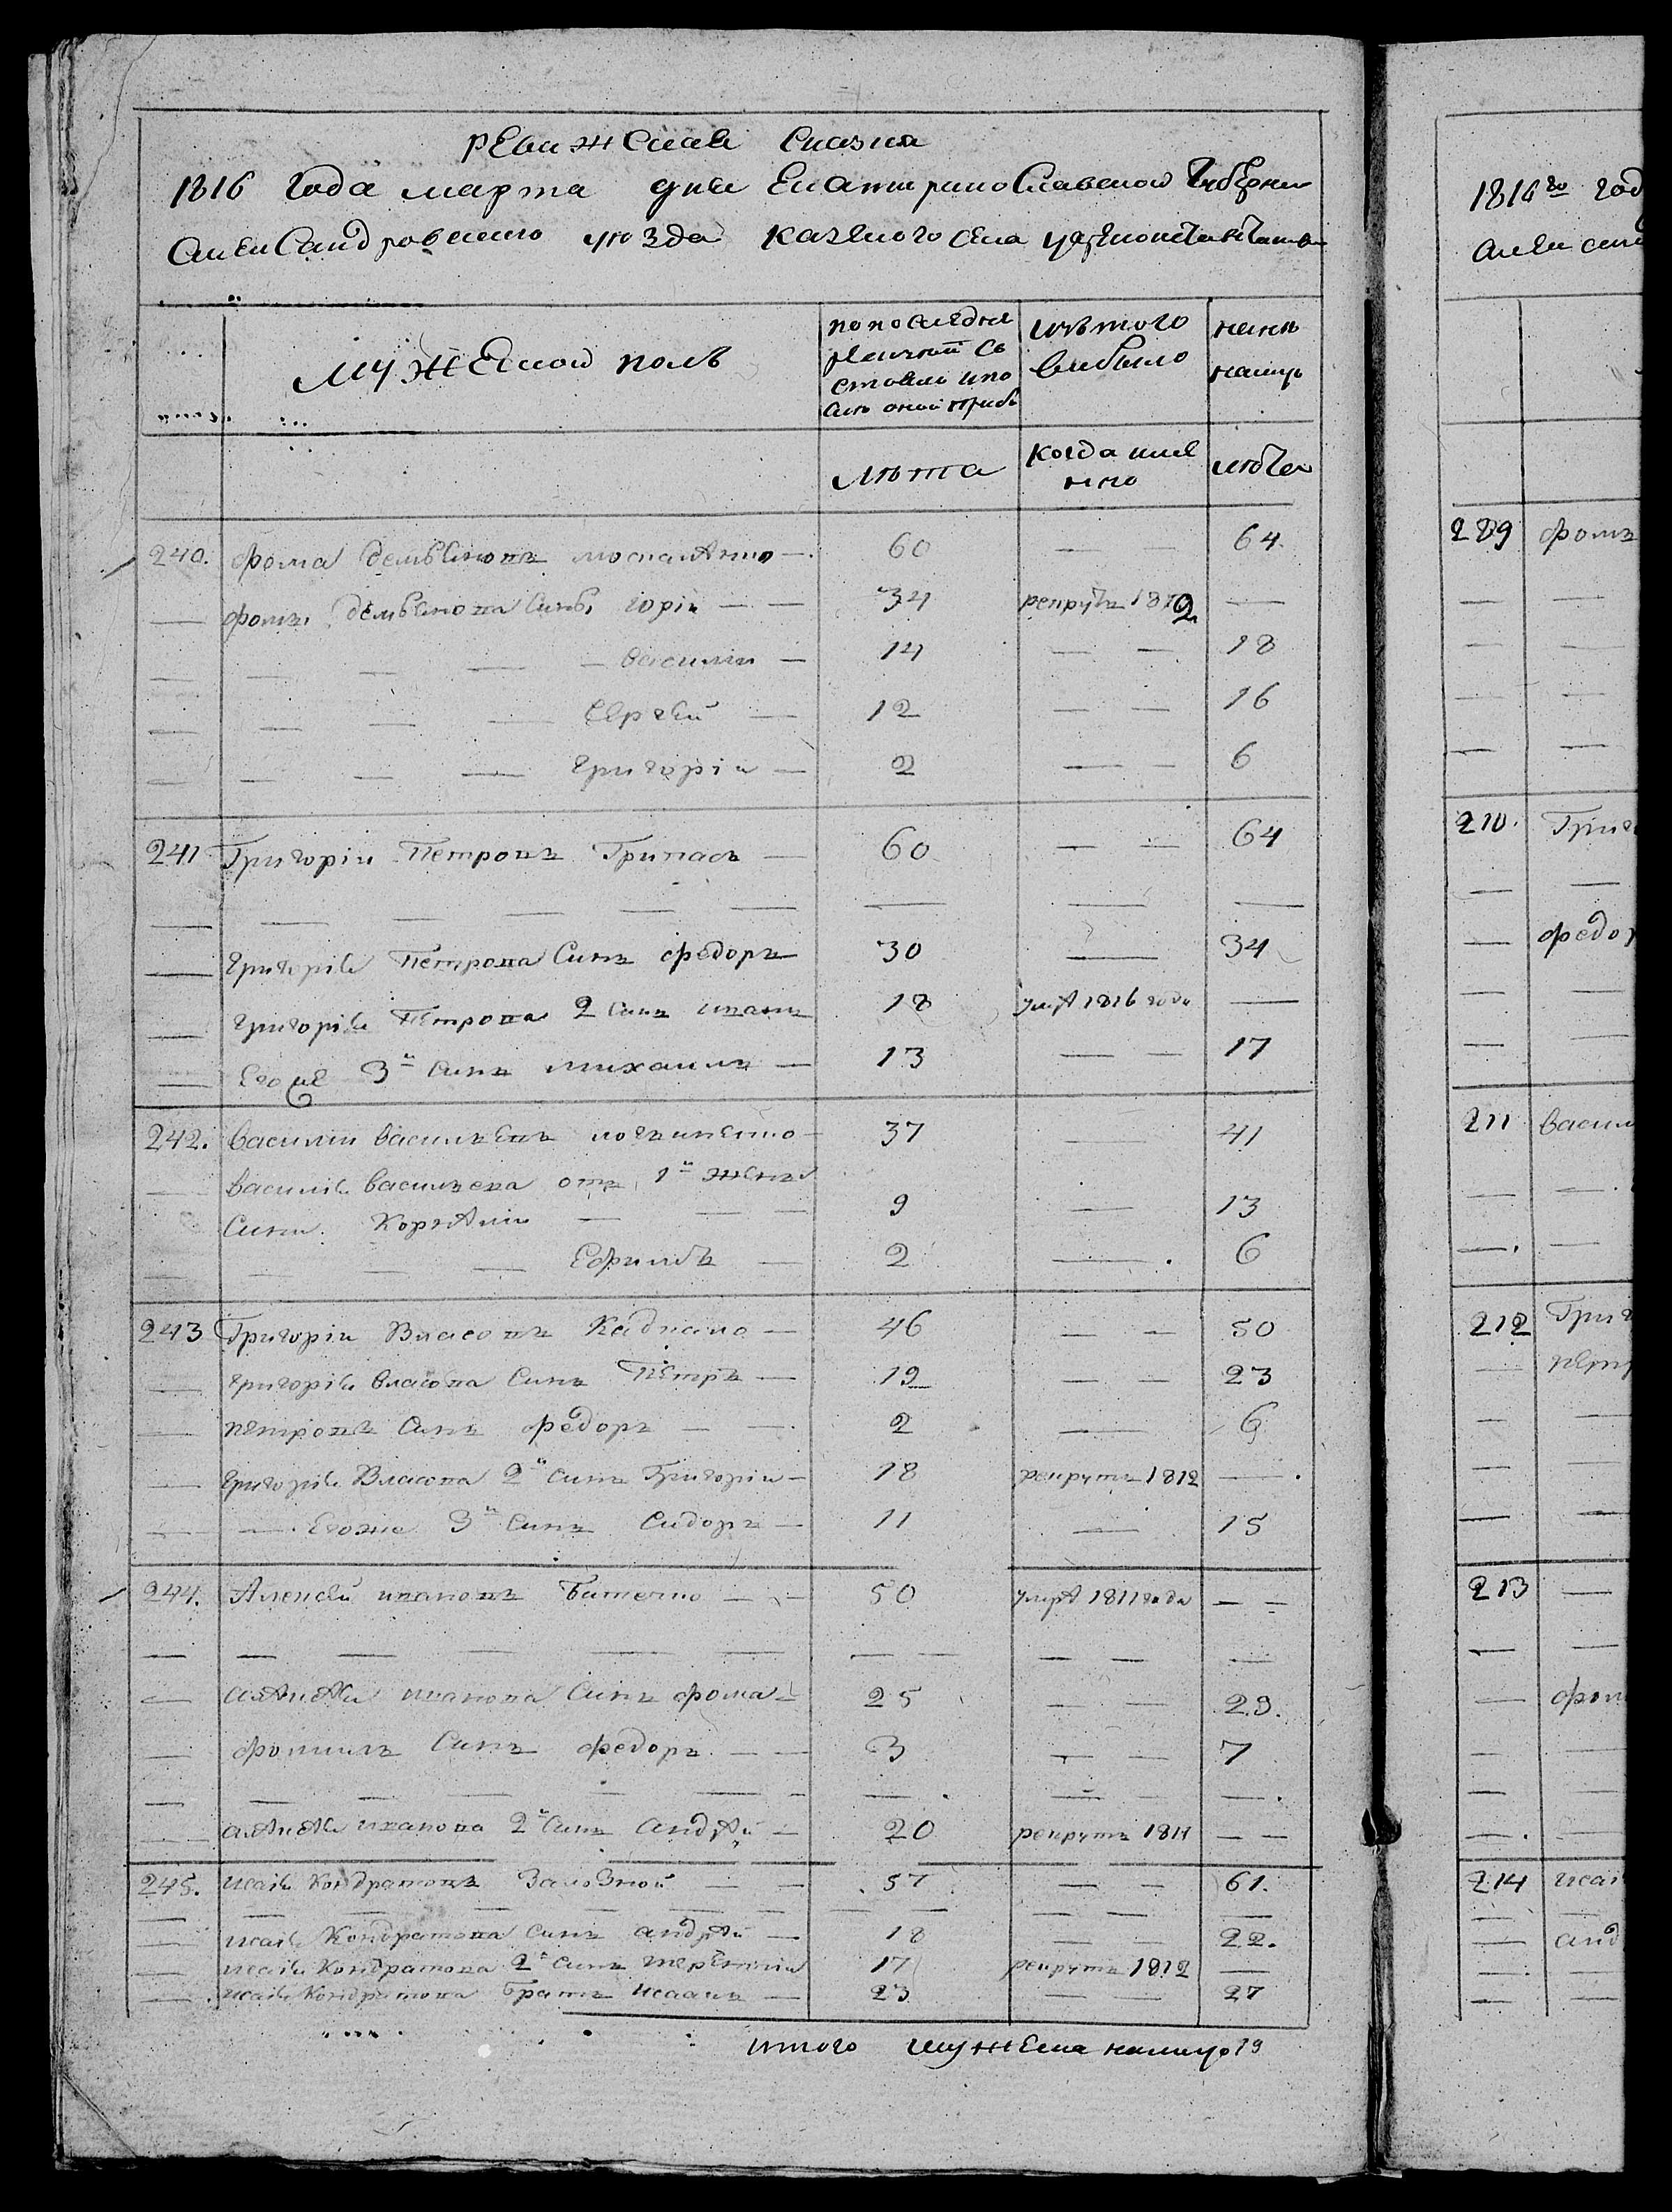 ревижская сказка
1816 года марта дня Екатиринославской Губернии
Александровского уюзда казеного села
мужеской полъ
по последней ревизии состояло и после оной прибы
изъ того выбыло
ныне налицо
люта
когда имено
люта
240. фома демъяновъ москаленко 60 64
фомы демъянова сынъ 34 рекрутъ 1812
василий 14 18
Сергей 12 16
григорій 2 6
241 Григорій Петровъ Грипасъ 60 64
григорія Петрова Синъ федоръ 30 34
григорія Петрова 2 синъ иванъ 18 умре 1816 года
Его же 3й синъ михаилъ 13 17
242. василий васильевъ 37 41
василія васильева отъ 1й жены
Сини Корнелій 9 13
Ефимъ 2 6
243 Григорій Власовъ 46 50
григорія власова Синъ Петръ 19 23
петровъ Синъ федоръ 2 6
григорія Власова 2й синъ Григорій 18 рекрутъ 1812
Егоже 3й Синъ Сидоръ 11 15
244. Алексей ивановъ Батечко 50 умре 1811 года
алексея иванова Синъ фома 25 29.
фоминъ Синъ федоръ 3 7
алексея иванова 2й Синъ андрей 20 рекрутъ 1811
245. исай Кондратовъ Зализной 57 61.
исая Кондратова Синъ андрей 18 22.
исая Кондратова 2й синъ терентий 17 рекрутъ 1812
исая Кондратова Братъ исаакъ 23 27
итого мужеска налицо 19
1816го год
алексан
209 фома
210. Григ
федор
211 васил
212 Григ
петр
213
фом
214 исай
анд